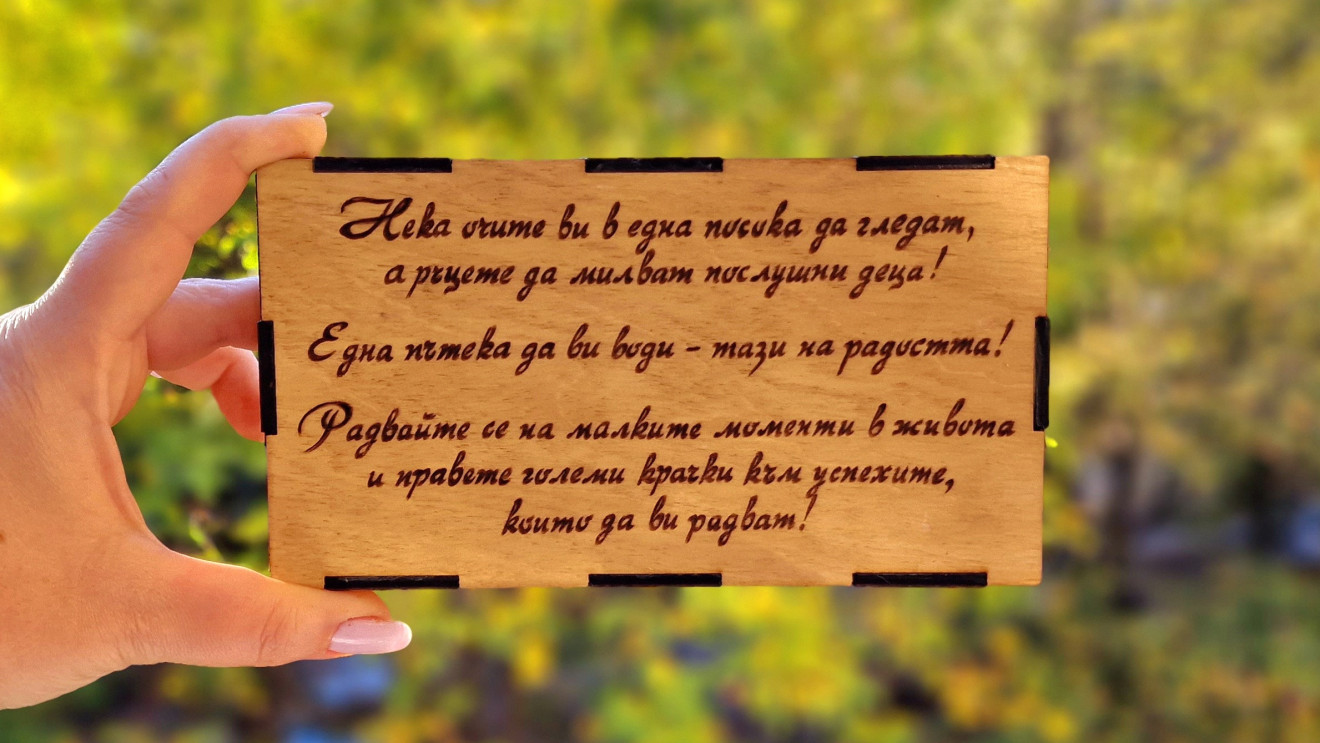 Нека очите ви в една посока да гледат,
а ръцете да милват послушни деца!
Една пътека да ви води - тази на радостта!
Радвайте се на малките моменти в живота
и правете големи крачки към успехите,
които да ви радват!